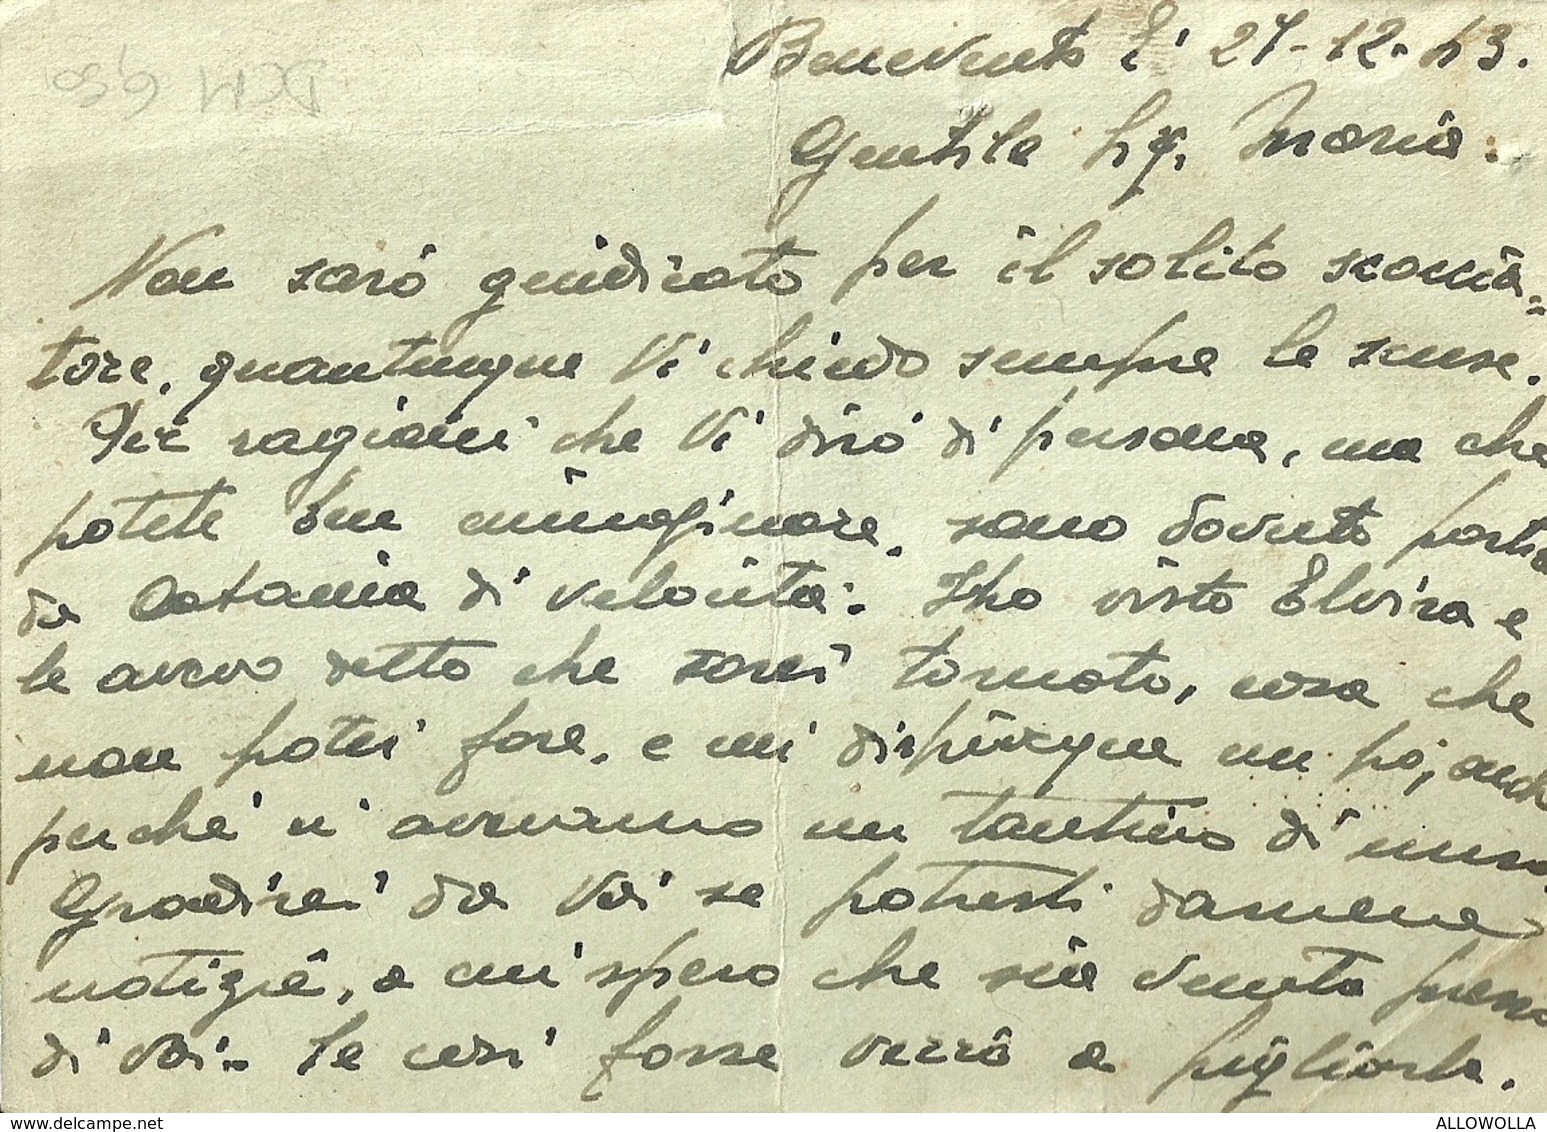 DCM 630
Benevento lì 27-12-43.
Gentile Sig. Maria:
Non sarò giudicato per il solito sceoccia=
tore, quantunque Vi chiedo sempre le scuse.
Per ragioni che Vi dirò di persona, ma che
potete ben immaginare, sono dovuto partire
da Catania di velocità. Ho visto Elvira e
le avevo detto che sarei tornato, cosa che
non potei fare, e mi dispiacque un po', anche
perché ci avevamo un tantino di muso.
Gradirei da Voi se potresti darmene
notizie, e mi spero che sia venuta presso
di Voi. Se così fosse verrò a pigliarla.
ALLOWOLLA
delcampe.net